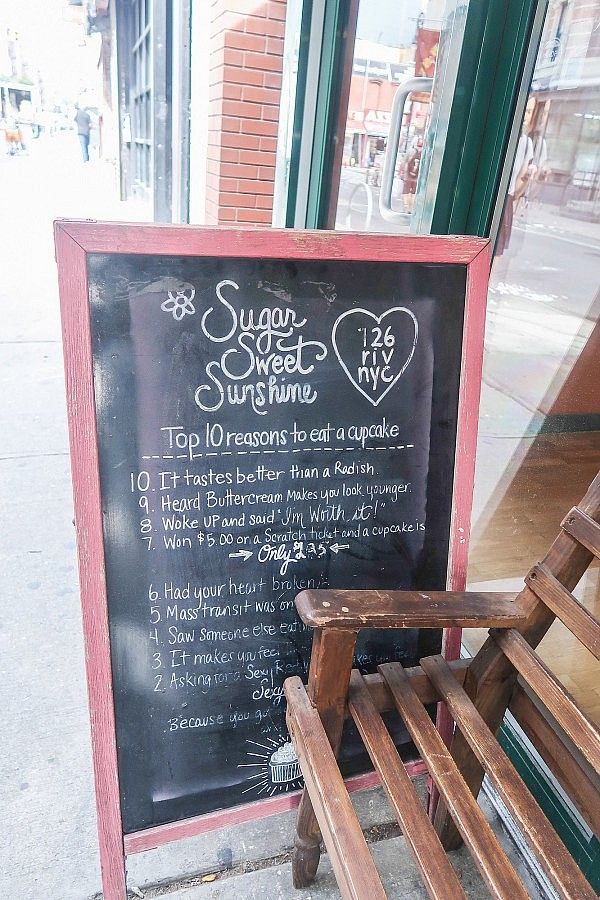 Sugar
Sweet
Sunshine
126
riv
nyc
Top 10 reasons to eat a cupcake
10. It tastes better than a Radish.
9. Heard Buttercream Makes you look younger.
8. Woke up and said "I'm Worth it!"
7. Won $5.00 on a Scratch ticket and a cupcake is
Only
6. Had your heart broken
5. Mass transit was on
4. Saw someone else
3. It makes you feel
2. Asking for a Sexy
Sexy
Because you